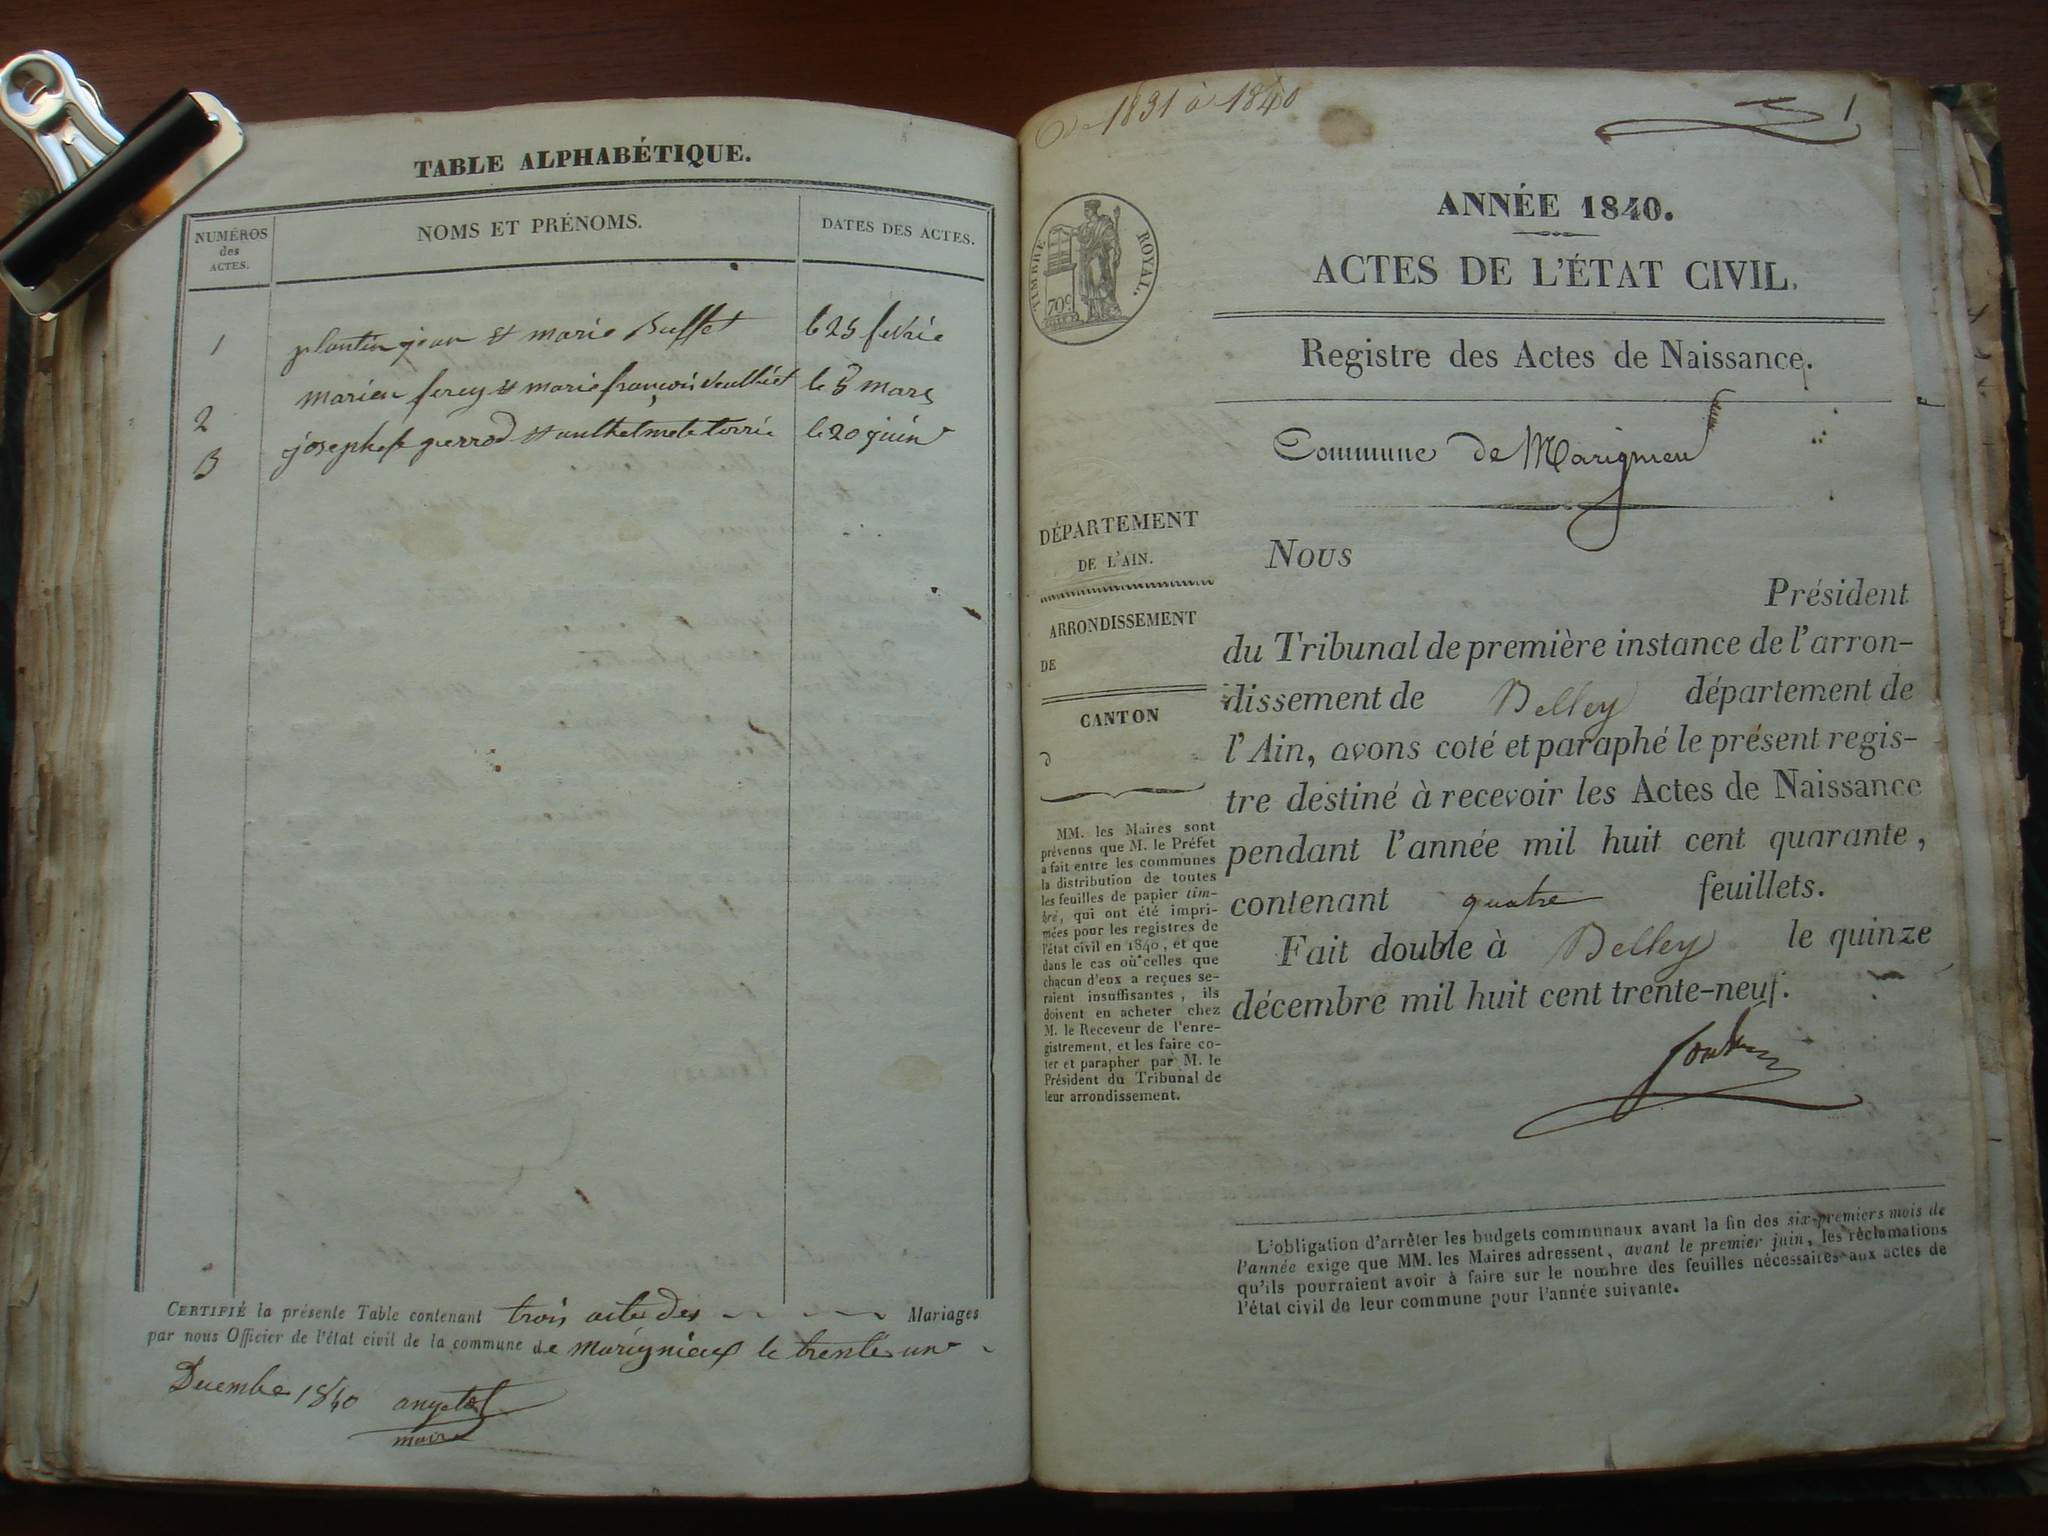 TABLE ALPHABÉTIQUE.
NUMÉROS
des
ACTES.
NOMS ET PRÉNOMS.
DATES DES ACTES.
1 plantin jean et marie Buffet le 25 fevrie
2 marieu ferey et marie françois le 3 mars
3 joseph pierrod et le 20 juin
CERTIFIÉ la présente Table contenant trois acte des Mariages
par nous Officier de l'état civil de la commune de marignieux le trente un
Decembre 1840
maire
de 1831 à 1840
1
TIMBRE ROYAL.
70c
ANNÉE 1840.
ACTES DE L'ÉTAT CIVIL.
Registre des Actes de Naissance.
Commune de Marignieu
DÉPARTEMENT
DE L'AIN.
ARRONDISSEMENT
DE
CANTON
d
MM. les Maires sont
prévenus que M. le Préfet
a fait entre les communes
la distribution de toutes
les feuilles de papier tim-
bré, qui ont été impri-
mées pour les registres de
l'état civil en 1840, et que
dans le cas où celles que
chacun d'eux a reçues se-
raient insuffisantes, ils
doivent en acheter chez
M. le Receveur de l'enre-
gistrement, et les faire co-
ter et parapher par M. le
Président du Tribunal de
leur arrondissement.
Nous
Président
du Tribunal de première instance de l'arron-
dissement de Belley département de
l'Ain, avons coté et paraphé le présent regis-
tre destiné à recevoir les Actes de Naissance
pendant l'année mil huit cent quarante,
contenant quatre feuillets.
Fait double à Belley le quinze
décembre mil huit cent trente-neuf.
L'obligation d'arrêter les budgets communaux avant la fin des six premiers mois de
l'année exige que MM. les Maires adressent, avant le premier juin, les réclamations
qu'ils pourraient avoir à faire sur le nombre des feuilles nécessaires aux actes de
l'état civil de leur commune pour l'année suivante.